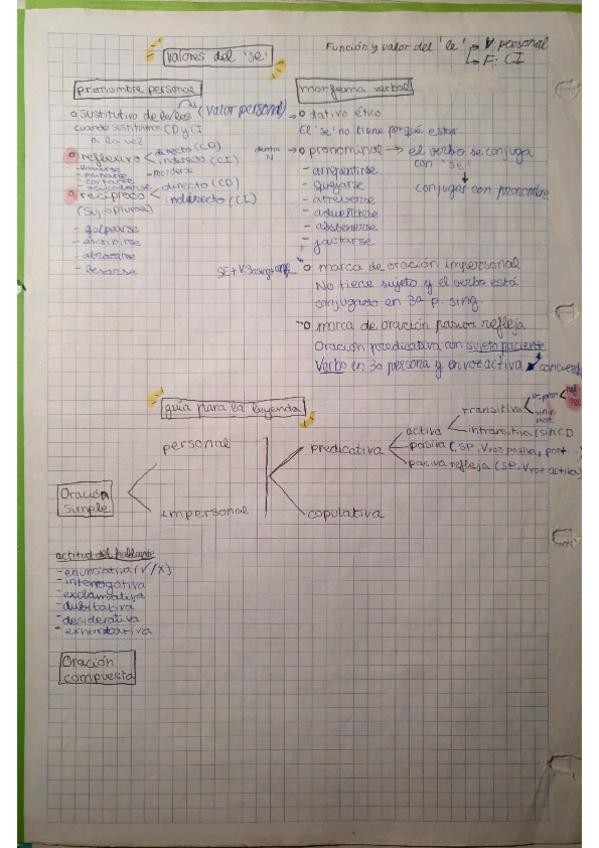 Valores del 'se'
Función y valor del 'le'
V: personal
F: CI
pronombre personal
o sustitutivo de le/les (valor personal)
cuando sustituimos CD y CI
a la vez
o reflexivo
directo (CD)
indirecto (CI)
- morderse
o recíproco
directo (CD)
indirecto (CI)
(Suj → plural)
- golpearse
- escribirse
- abrazarse
- besarse
morfema verbal
o dativo ético
El 'se' no tiene porqué estar
o pronominal → el verbo se conjuga
con 'se'
conjugar con pronombre
- arrepentirse
- quejarse
- atreverse
- adueñarse
- abstenerse
- jactarse
SE + V. 3a sing
o marca de oración impersonal
No tiene sujeto y el verbo está
conjugado en 3a p. sing.
o marca de oración pasiva refleja
Oración predicativa con sujeto paciente
Verbo en 3a persona y en voz activa
guía para la leyenda
Oración
simple
personal
impersonal
predicativa
copulativa
activa
transitiva
intransitiva (sin CD
pasiva (SP, V voz pasiva,
pasiva refleja (SP, V voz activa)
actitud del hablante
- enunciativa (✓/X)
- interrogativa
- exclamativa
- dubitativa
- desiderativa
- exhortativa
Oración
compuesta